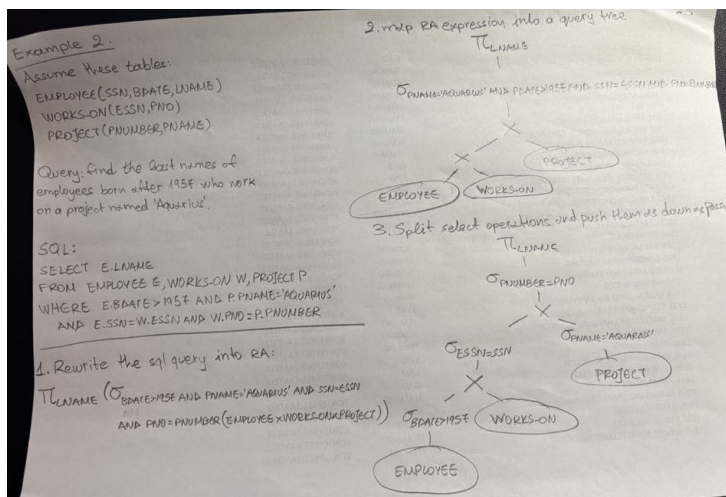 Example 2.
Assume these tables:
EMPLOYEE(SSN, BDATE, LNAME)
WORKS-ON(ESSN, PNO)
PROJECT(PNUMBER, PNAME)
Query: find the last names of
employees born after 1957 who work
on a project named 'Aquarius'.
SQL:
SELECT E.LNAME
FROM EMPLOYEE E, WORKS-ON W, PROJECT P
WHERE E.BDATE>1957 AND P.PNAME='AQUARIUS'
AND E.SSN=W.ESSN AND W.PNO=P.PNUMBER
1. Rewrite the sql query into RA:
π LNAME (σ BDATE>1957 AND PNAME='AQUARIUS' AND SSN=ESSN
AND PNO=PNUMBER (EMPLOYEE×WORKS-ON×PROJECT))
2. map RA expression into a query tree
π LNAME
σ PNAME='AQUARIUS' AND BDATE>1957 AND SSN=ESSN AND PNO=PNUMBER
×
× PROJECT
EMPLOYEE WORKS-ON
3. Split select operations and push them as down as
π LNAME
σ PNUMBER=PNO
×
σ ESSN=SSN σ PNAME='AQUARIUS'
× PROJECT
σ BDATE>1957 WORKS-ON
EMPLOYEE